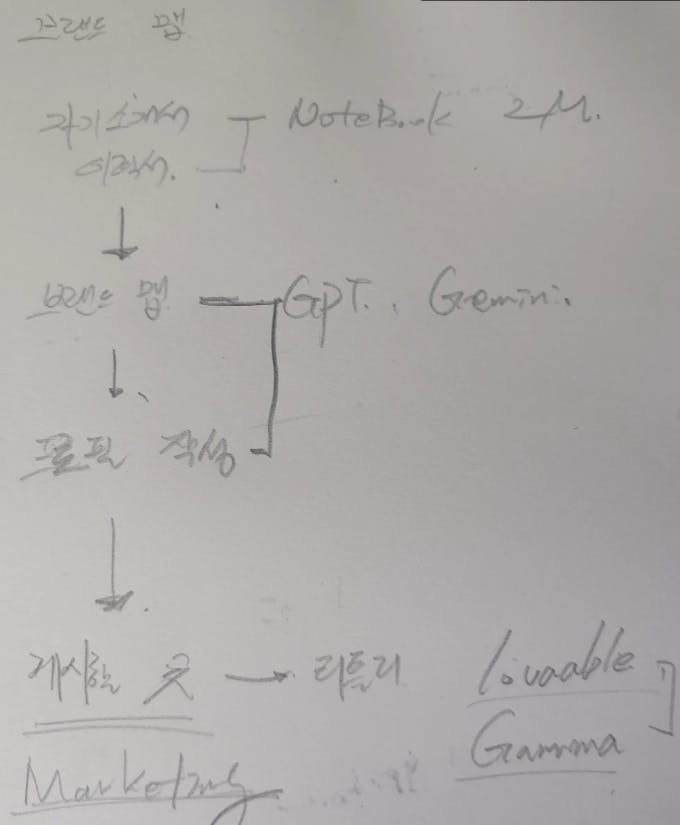 브랜드 맵
자기소개서 NoteBook LM.
이력서.
브랜드 맵 GPT. , Gemini.
프로필 작성
게시할 곳 → 리틀리 lovaable
Gamma
Marketing